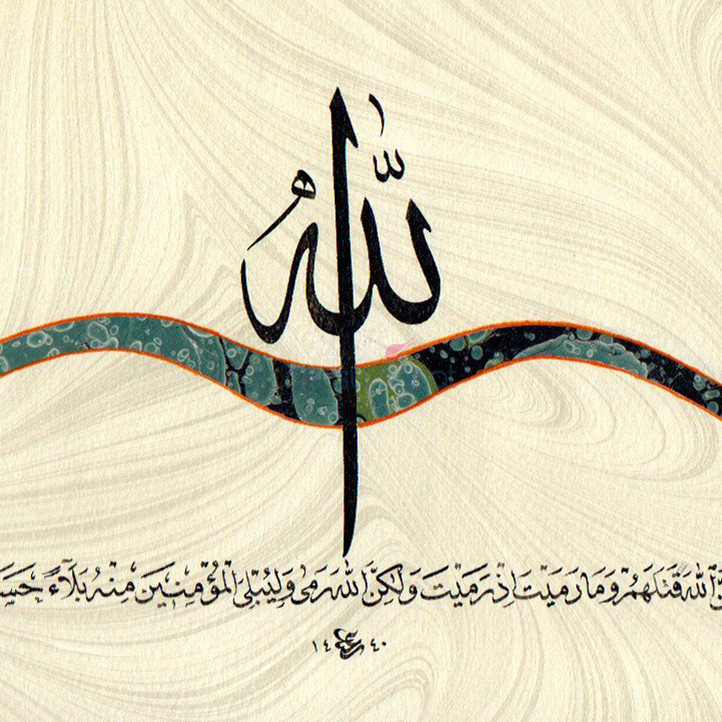 الله
اللّٰهَ قَتَلَهُمْ وَمَا رَمَيْتَ اِذْ رَمَيْتَ وَلٰكِنَّ اللّٰهَ رَمٰى وَلِيُبْلِىَ الْمُؤْمِنٖينَ مِنْهُ بَلَٓاءً
١٤٤٠